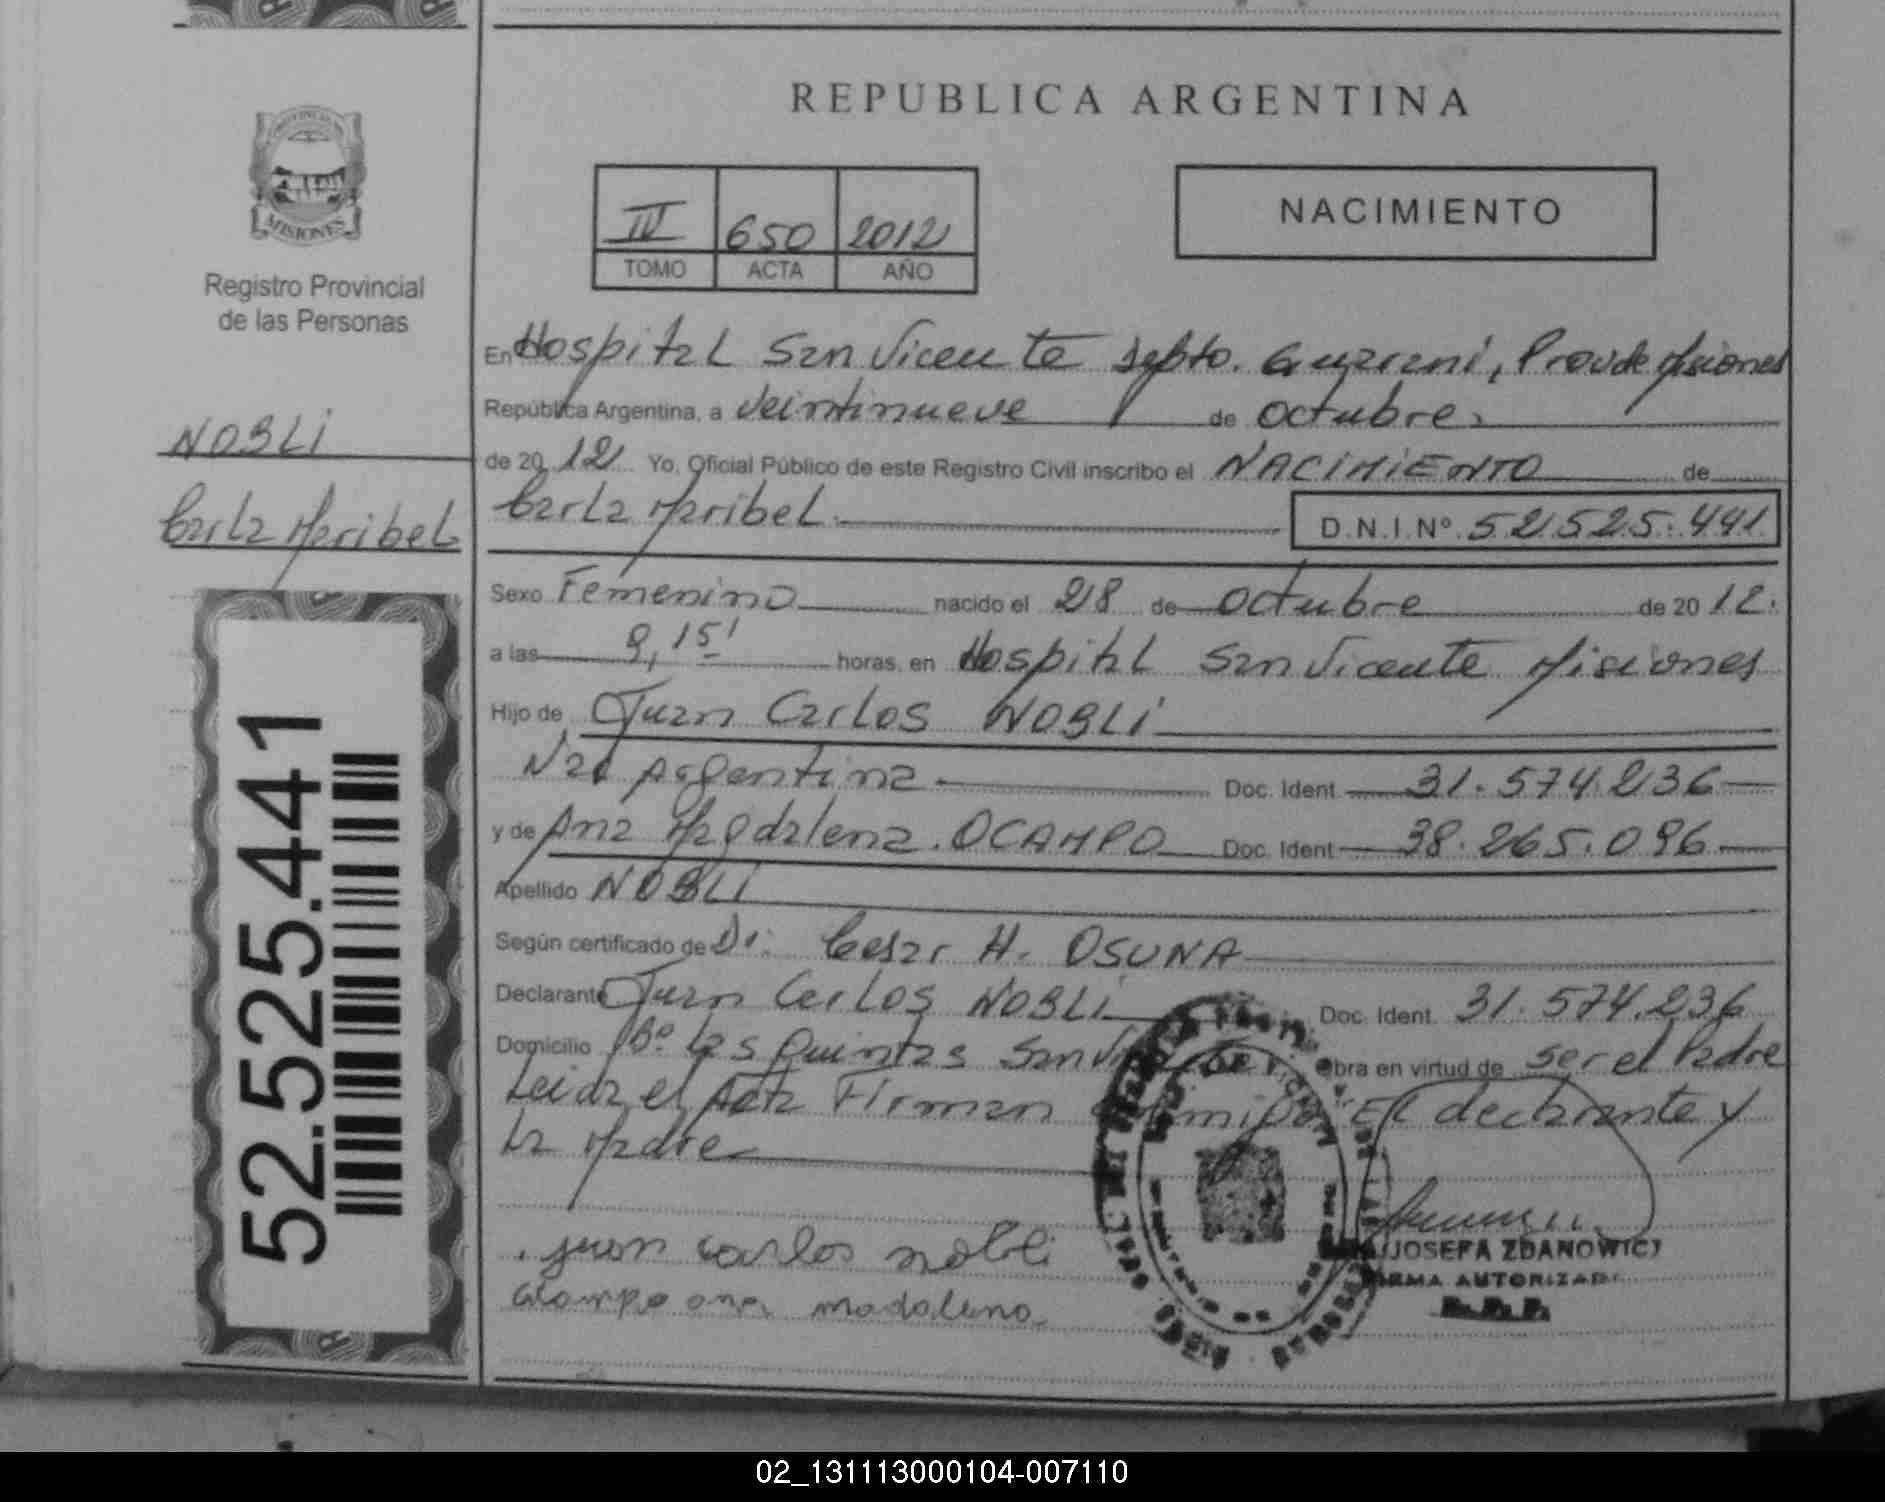 REPUBLICA ARGENTINA
PROVINCIA DE
MISIONES
Registro Provincial
de las Personas
NOBLI
Carla Maribel
52.525.441
III 650 2012
TOMO ACTA AÑO
NACIMIENTO
En Hospital San Vicente Depto. Guarani, Prov de Misiones
República Argentina, a Veintinueve de octubre
de 20 12 Yo, Oficial Público de este Registro Civil inscribo el NACIMIENTO de
Carla Maribel. D.N.I.Nº 52525.441
Sexo Femenino nacido el 28 de octubre de 20 12.
a las 9,15' horas, en Hospital San Vicente Misiones
Hijo de Juan Carlos NOBLI
Nac Argentina Doc. Ident. 31.574.236
y de Ana Magdalena. OCAMPO Doc. Ident. 38.265.096
Apellido NOBLI
Según certificado de Dr: Cesar H. OSUNA
Declarante Juan Carlos NOBLI Doc. Ident. 31.574.236
Domicilio Bº Las Quintas San Obra en virtud de ser el Padre
Leida el Acta Firman El declarante y
La Madre
juan carlos nobli
ocampo ana madalena
JOSEFA ZDANOWICZ
FIRMA AUTORIZADA
R.P.P.
02_131113000104-007110